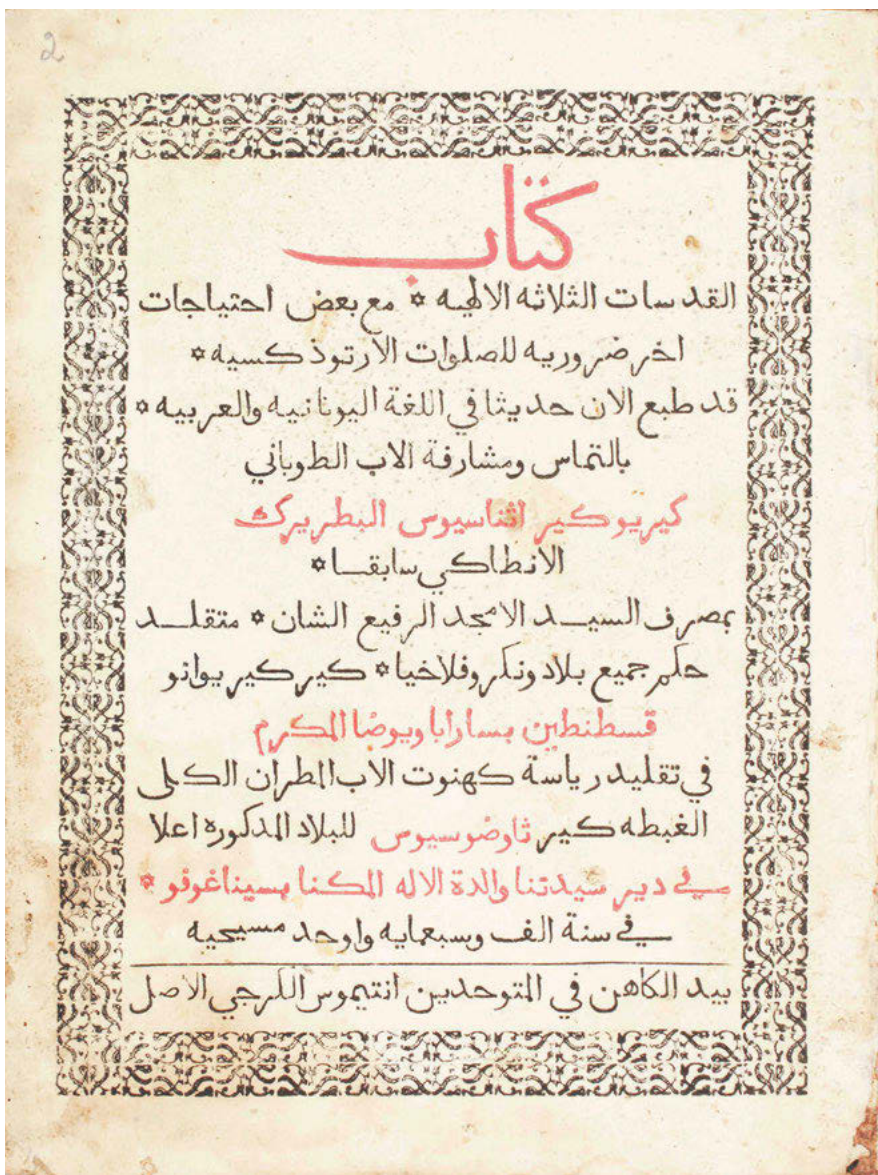 2
كتاب
القدسات الثلاثه الالهيه * مع بعض احتياجات
اخر ضروريه للصلوات الارتوذكسيه *
قد طبع الان حديثا في اللغة اليونانيه والعربيه *
بالتماس ومشارفة الاب الطوباني
كيريو كير اثناسيوس البطريرك
الانطاكي سابقا *
بمصرف السيد الامجد الرفيع الشان * متقلد
حكم جميع بلاد ونكروفلاخيا * كير كير يوانو
قسطنطين بساراباويوضا المكرم
في تقليد رياسة كهنوت الاب المطران الكلي
الغبطه كير ثاوضوسيوس للبلاد المذكوره اعلا
في دير سيدتنا والدة الاله المكنا بسيناغوفو *
في سنة الف وسبعمايه واوحد مسيحيه
بيد الكاهن في المتوحدين انتيموس الكرجي الاصل